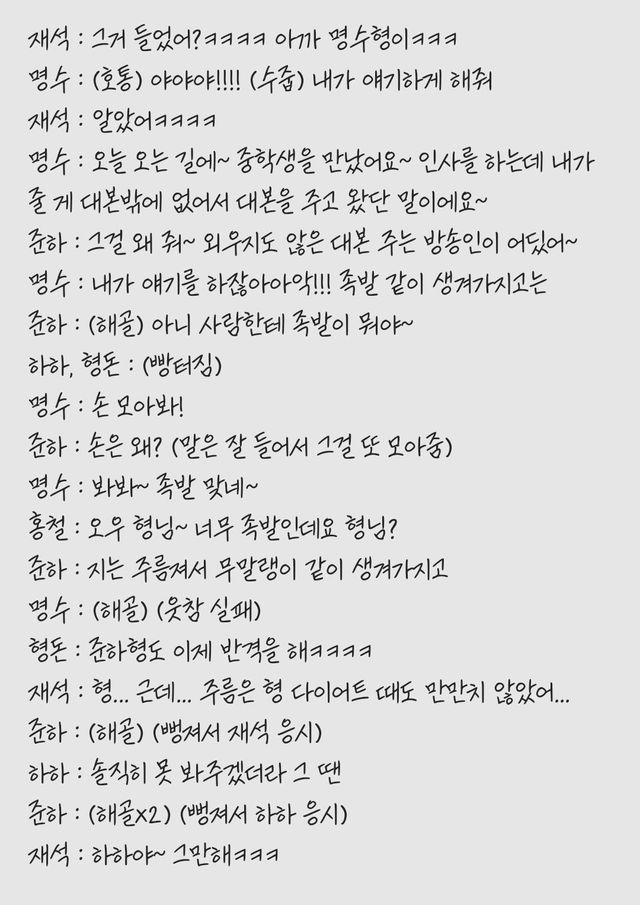 재석 : 그거 들었어?ㅋㅋㅋㅋ 아까 명수형이ㅋㅋㅋ
명수 : (호통) 야야야!!!! (수줍) 내가 얘기하게 해줘
재석 : 알았어ㅋㅋㅋㅋ
명수 : 오늘 오는 길에~ 중학생을 만났어요~ 인사를 하는데 내가
줄 게 대본밖에 없어서 대본을 주고 왔단 말이에요~
준하 : 그걸 왜 줘~ 외우지도 않은 대본 주는 방송인이 어딨어~
명수 : 내가 얘기를 하잖아아악!!! 족발 같이 생겨가지고는
준하 : (해골) 아니 사람한테 족발이 뭐야~
하하, 형돈 : (빵터짐)
명수 : 손 모아봐!
준하 : 손은 왜? (말은 잘 들어서 그걸 또 모아줌)
명수 : 봐봐~ 족발 맞네~
홍철 : 오우 형님~ 너무 족발인데요 형님?
준하 : 지는 주름져서 무말랭이 같이 생겨가지고
명수 : (해골) (웃참 실패)
형돈 : 준하형도 이제 반격을 해ㅋㅋㅋㅋ
재석 : 형... 근데... 주름은 형 다이어트 때도 만만치 않았어...
준하 : (해골) (뻥져서 재석 응시)
하하 : 솔직히 못 봐주겠더라 그 땐
준하 : (해골x2) (뻥져서 하하 응시)
재석 : 하하야~ 그만해ㅋㅋㅋ